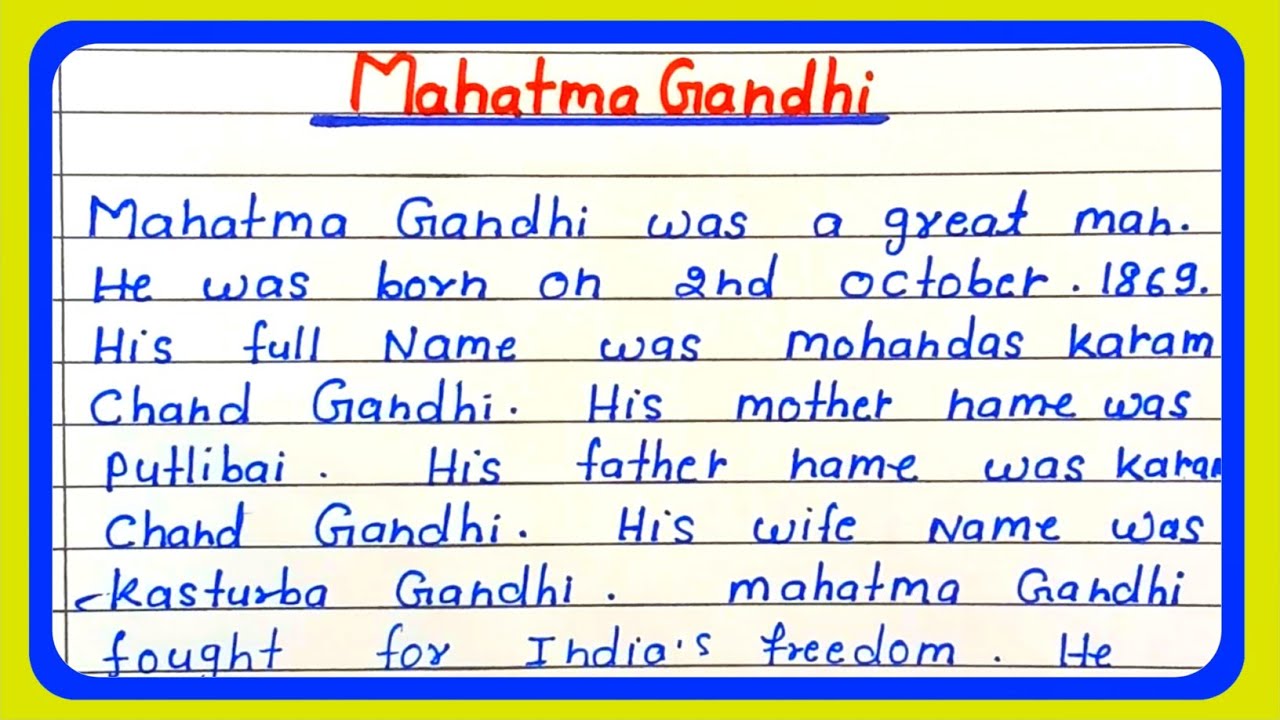 Mahatma Gandhi
Mahatma Gandhi was a great man.
He was born on 2nd october . 1869.
His full Name was mohandas karam
Chand Gandhi. His mother name was
putlibai . His father name was karam
Chand Gandhi. His wife Name was
kasturba Gandhi . mahatma Gandhi
fought for India's freedom . He